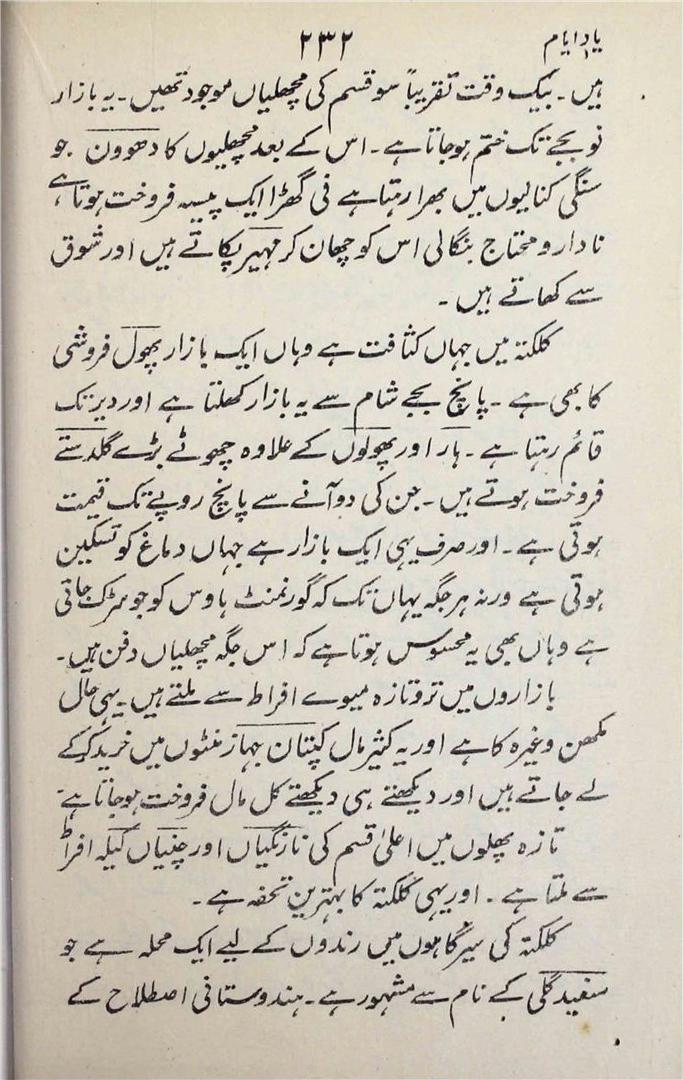 یادِ ایام
۲۳۲
ہیں۔ بیک وقت تقریباً سو قسم کی مچھلیاں موجود تھیں۔ یہ بازار
نو بجے تک ختم ہوجاتا ہے۔ اس کے بعد مچھلیوں کا دھوون جو
سنگی کنالیوں میں بھرا رہتا ہے فی گھڑا ایک پیسہ فروخت ہوتا ہے
نادار و محتاج بنگالی اس کو چھان کر مہیر پکاتے ہیں اور شوق
سے کھاتے ہیں۔
کلکتہ میں جہاں کثافت ہے وہاں ایک بازار پھول فروشی
کا بھی ہے۔ پانچ بجے شام سے یہ بازار کھلتا ہے اور دیر تک
قائم رہتا ہے۔ ہار اور پھولوں کے علاوہ چھوٹے بڑے گلدستے
فروخت ہوتے ہیں۔ جن کی دو آنے سے پانچ روپے تک قیمت
ہوتی ہے۔ اور صرف یہی ایک بازار ہے جہاں دماغ کو تسکین
ہوتی ہے ورنہ ہر جگہ یہاں تک کہ گورنمنٹ ہاوس کو جو سڑک جاتی
ہے وہاں بھی یہ محسوس ہوتا ہے کہ اس جگہ مچھلیاں دفن ہیں۔
بازاروں میں تروتازہ میوے افراط سے ملتے ہیں۔ یہی حال
مکھن وغیرہ کا ہے اور یہ کثیر مال کپتان جہاز منٹوں میں خرید کرکے
لے جاتے ہیں اور دیکھتے ہی دیکھتے کل مال فروخت ہوجاتا ہے۔
تازہ پھلوں میں اعلیٰ قسم کی نارنگیاں اور چنیاں کیلہ افراط
سے ملتا ہے۔ اور یہی کلکتہ کا بہترین تحفہ ہے۔
کلکتہ کی سیرگاہوں میں رندوں کے لیے ایک محلہ ہے جو
سفید گلی کے نام سے مشہور ہے۔ ہندوستانی اصطلاح کے